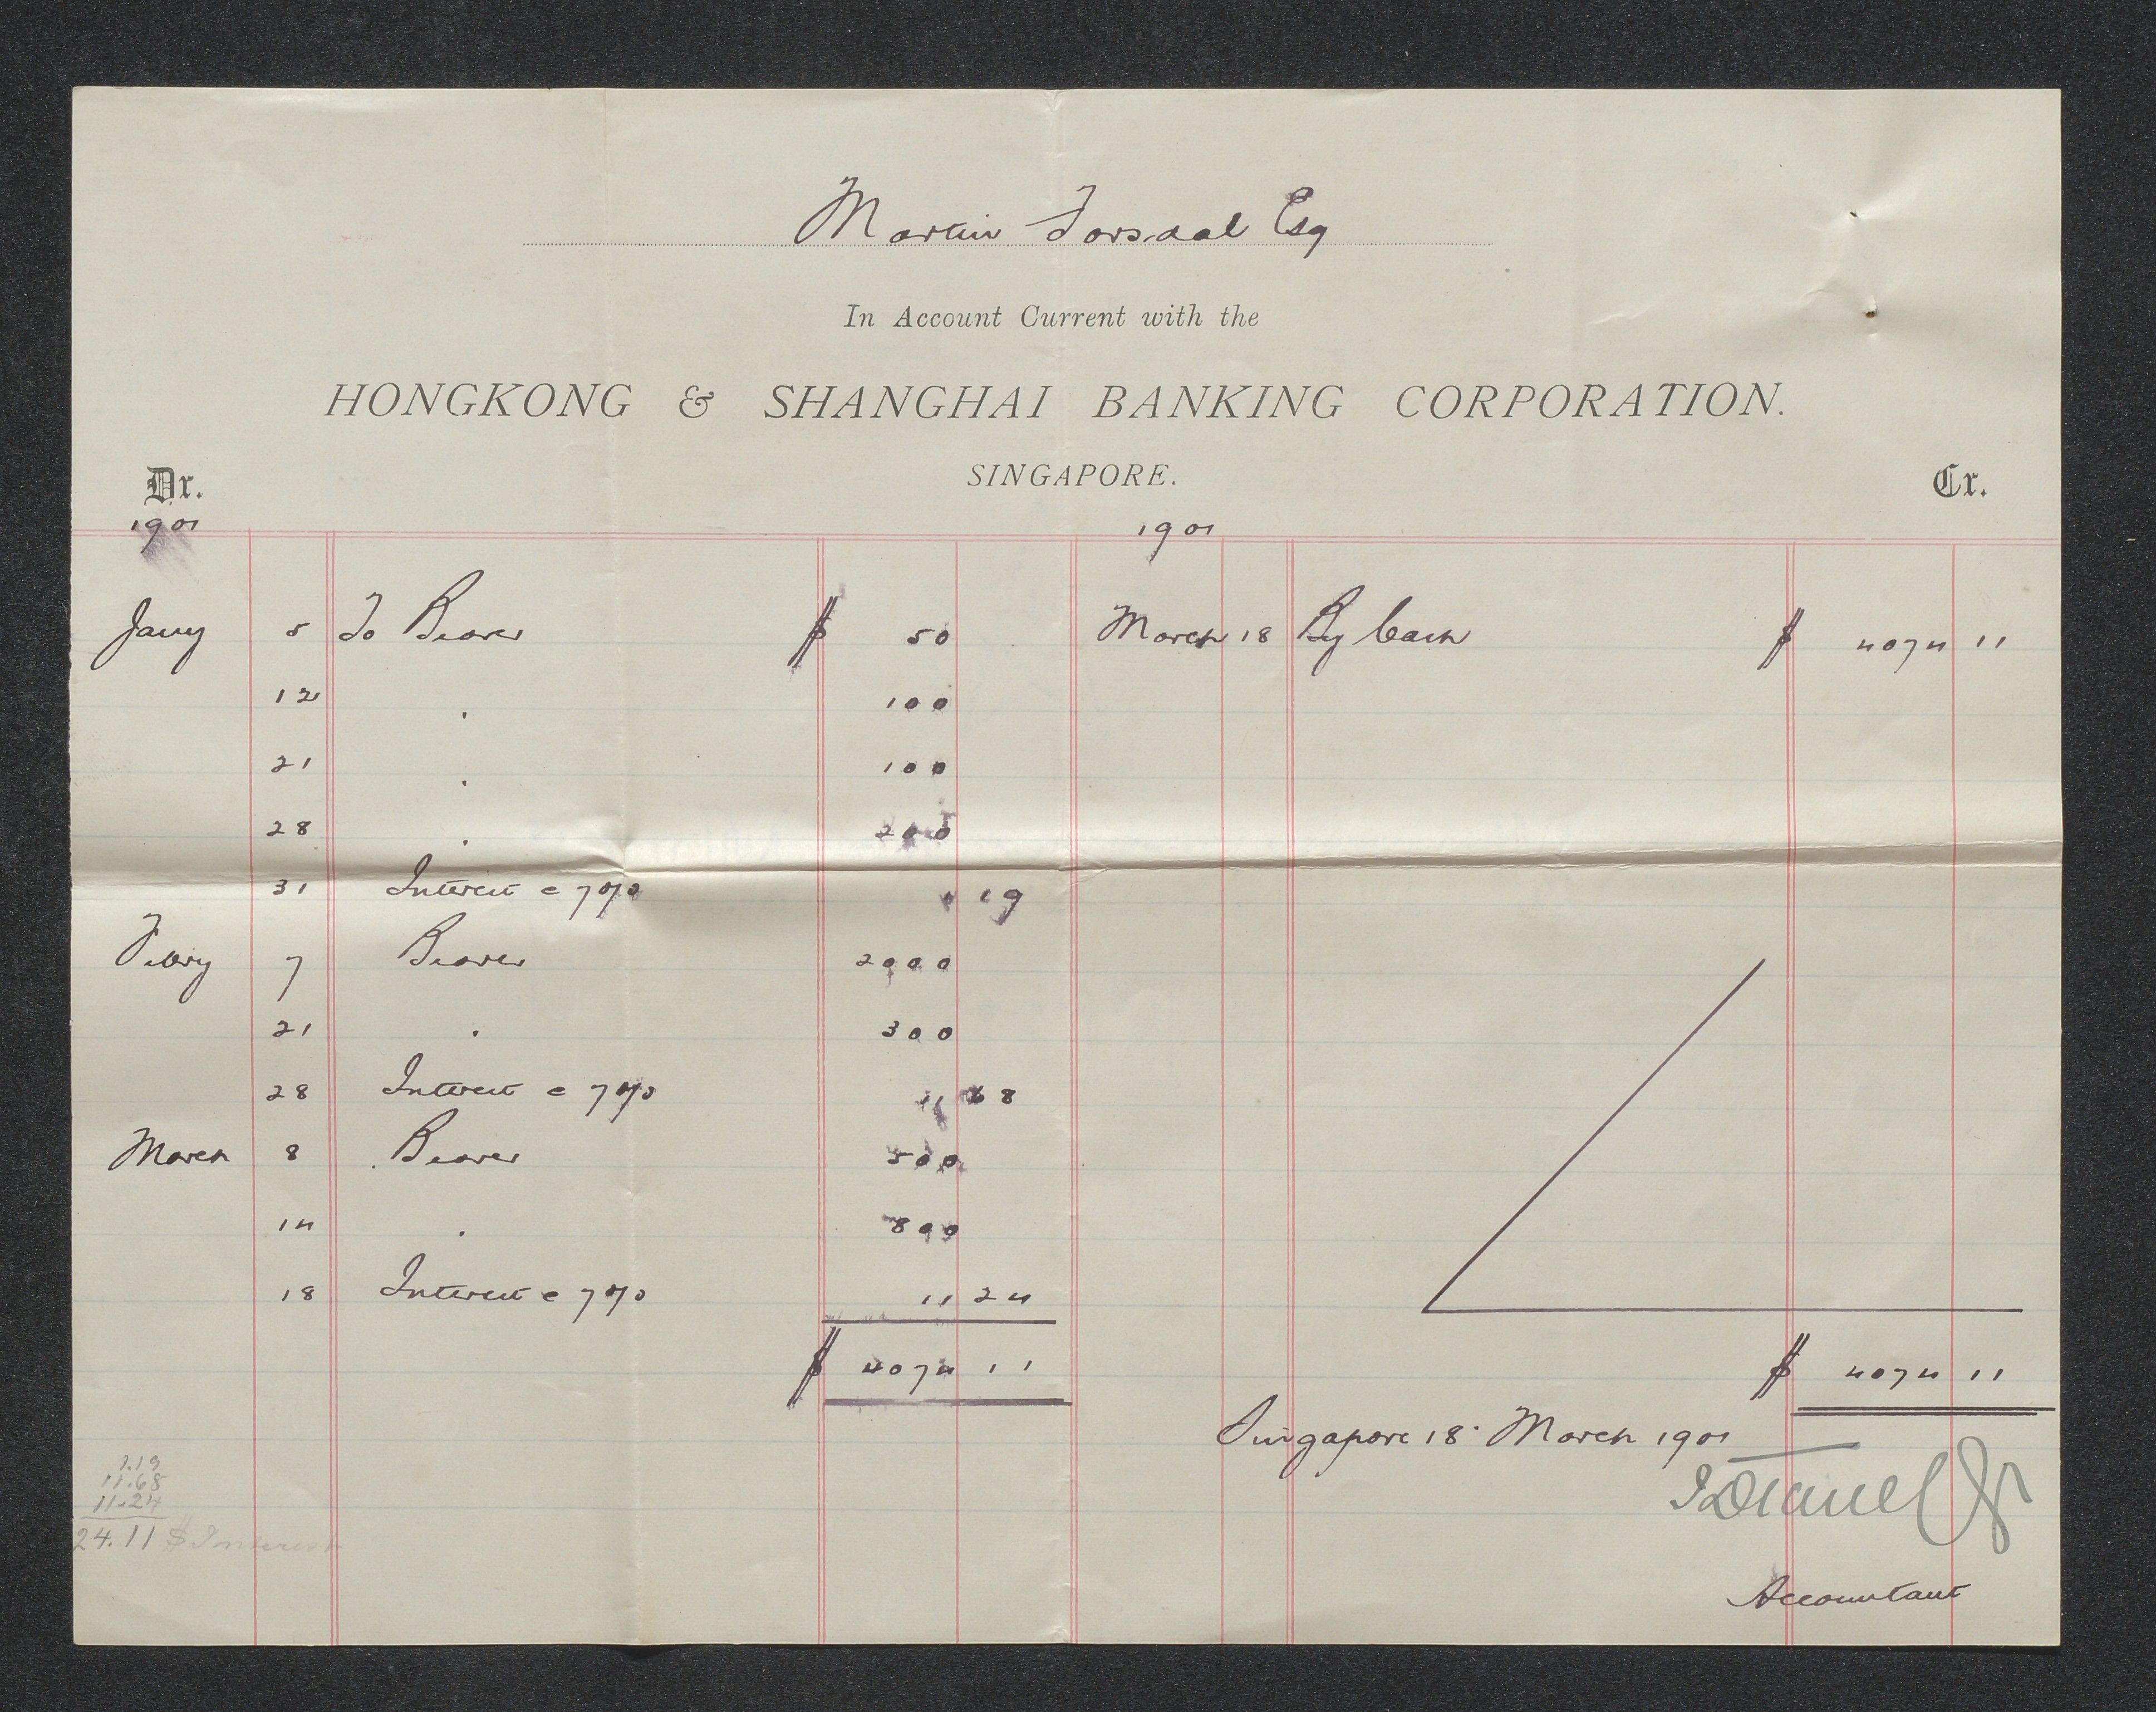 Martin Torsdal Esq
In Account Current with the
HONGKONG & SHANGHAI BANKING CORPORATION.
SINGAPORE.
Dr.
Cr.
1901
1901
Jany 5 To Bearer $ 50
12 " 100
21 " 100
28 " 200
31 Interest @ 7 o/o 1 19
Febry 7 Bearer 2000
21 " 300
28 Interest @ 7 o/o 11 68
March 8 Bearer 500
14 " 800
18 Interest @ 7 o/o 11 24
$ 4074 11
1.19
11.68
11.24
24.11 $ Interest
March 18 By Cash $ 4074 11
$ 4074 11
Singapore 18 March 1901
Accountant